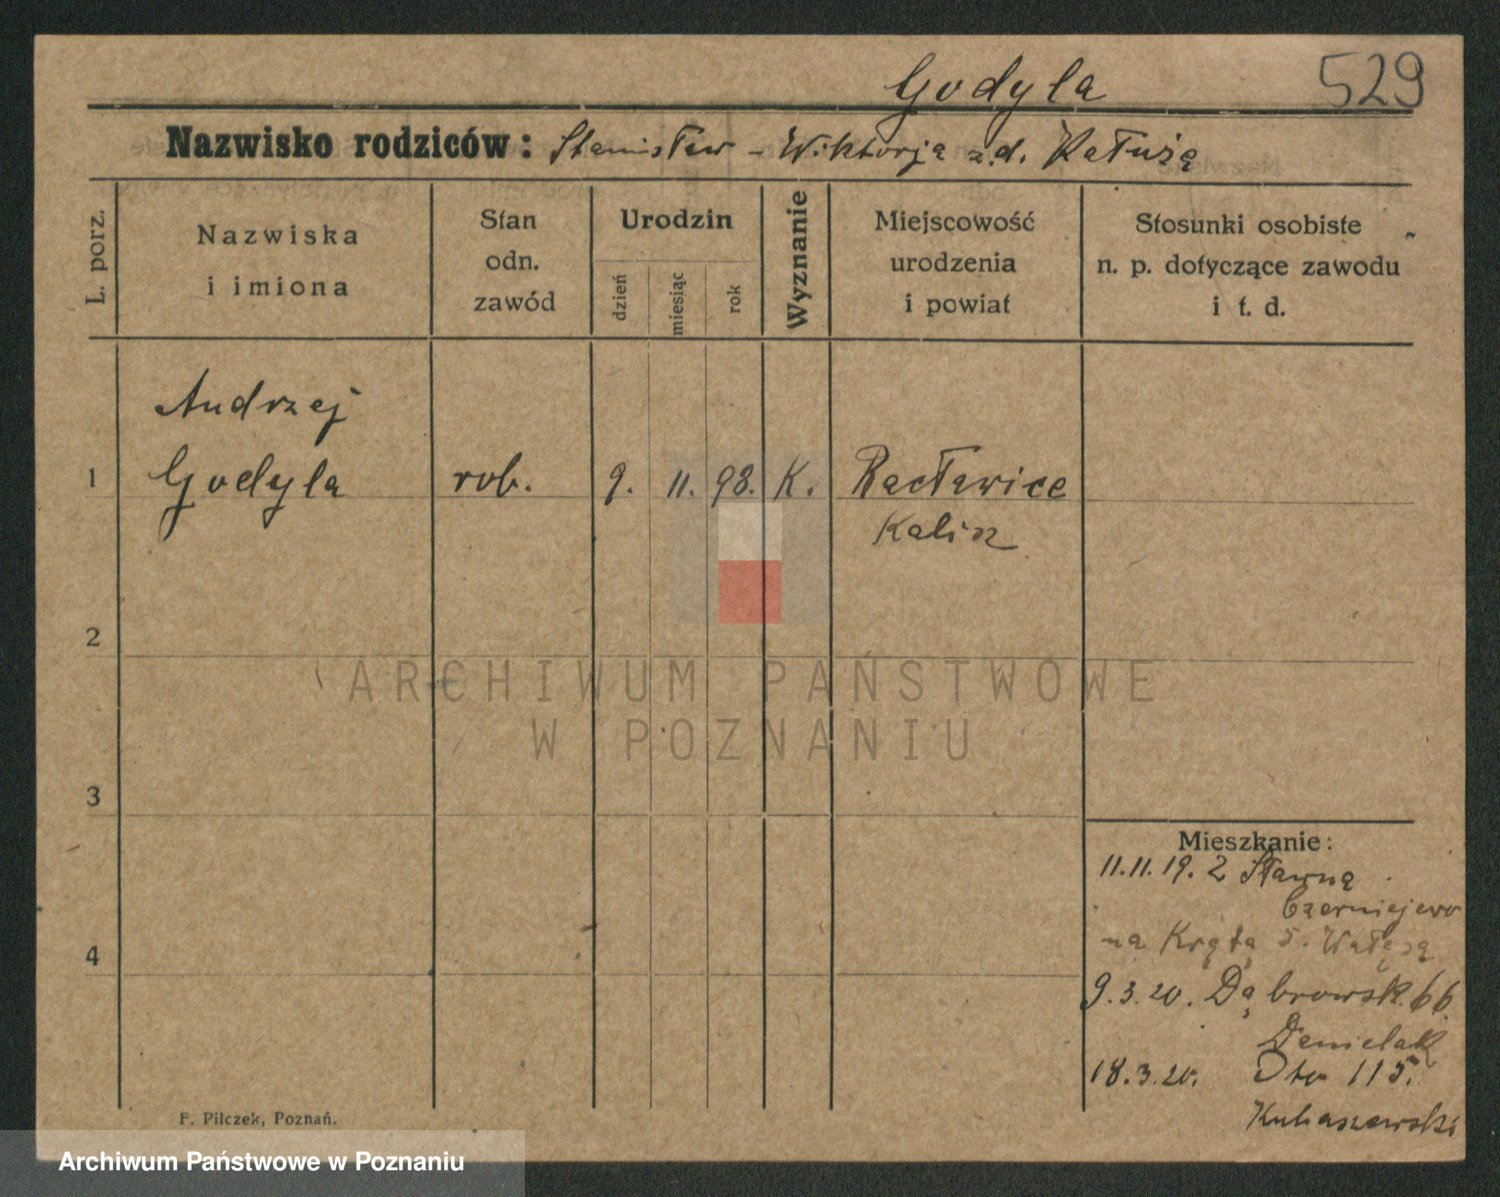 Godyla 529
Nazwisko rodziców: Stanisław - Wiktorja z.d. Kałuża
L. porz.
Nazwiska
i imiona
Stan
odn.
zawód
Urodzin
dzień
miesiąc
rok
Wyznanie
Miejscowość
urodzenia
i powiat
Stosunki osobiste
n. p. dotyczące zawodu
i t. d.
Andrzej
1 Godyla rob. 9. 11. 98. K. Racławice
Kalisz
2
ARCHIWUM PAŃSTWOWE
W POZNANIU
3
Mieszkanie:
11.11.19. 2 Sławna
Czerniejewo
na Krętą 5.
4
9.3.20. Dąbrowsk. 66.
Danielak
18.3.20. 115.
Kubaszewski
F. Pilczek, Poznań.
Archiwum Państwowe w Poznaniu